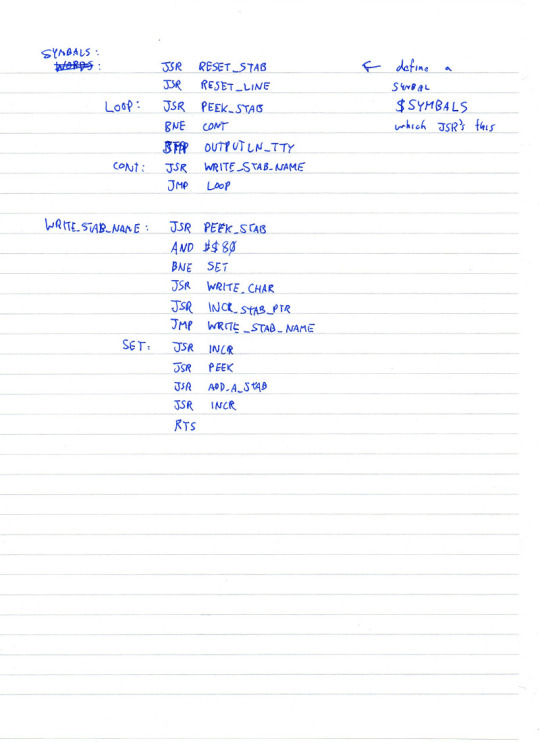 SYMBALS:
WORDS: JSR RESET_STAB ← define a
JSR RESET_LINE SYMBAL
LOOP: JSR PEEK_STAB $SYMBALS
BNE CONT which JSR's this
JMP OUTPUTLN_TTY
CONT: JSR WRITE_STAB_NAME
JMP LOOP
WRITE_STAB_NAME: JSR PEEK_STAB
AND #$80
BNE SET
JSR WRITE_CHAR
JSR INCR_STAB_PTR
JMP WRITE_STAB_NAME
SET: JSR INCR
JSR PEEK
JSR ADD_A_STAB
JSR INCR
RTS